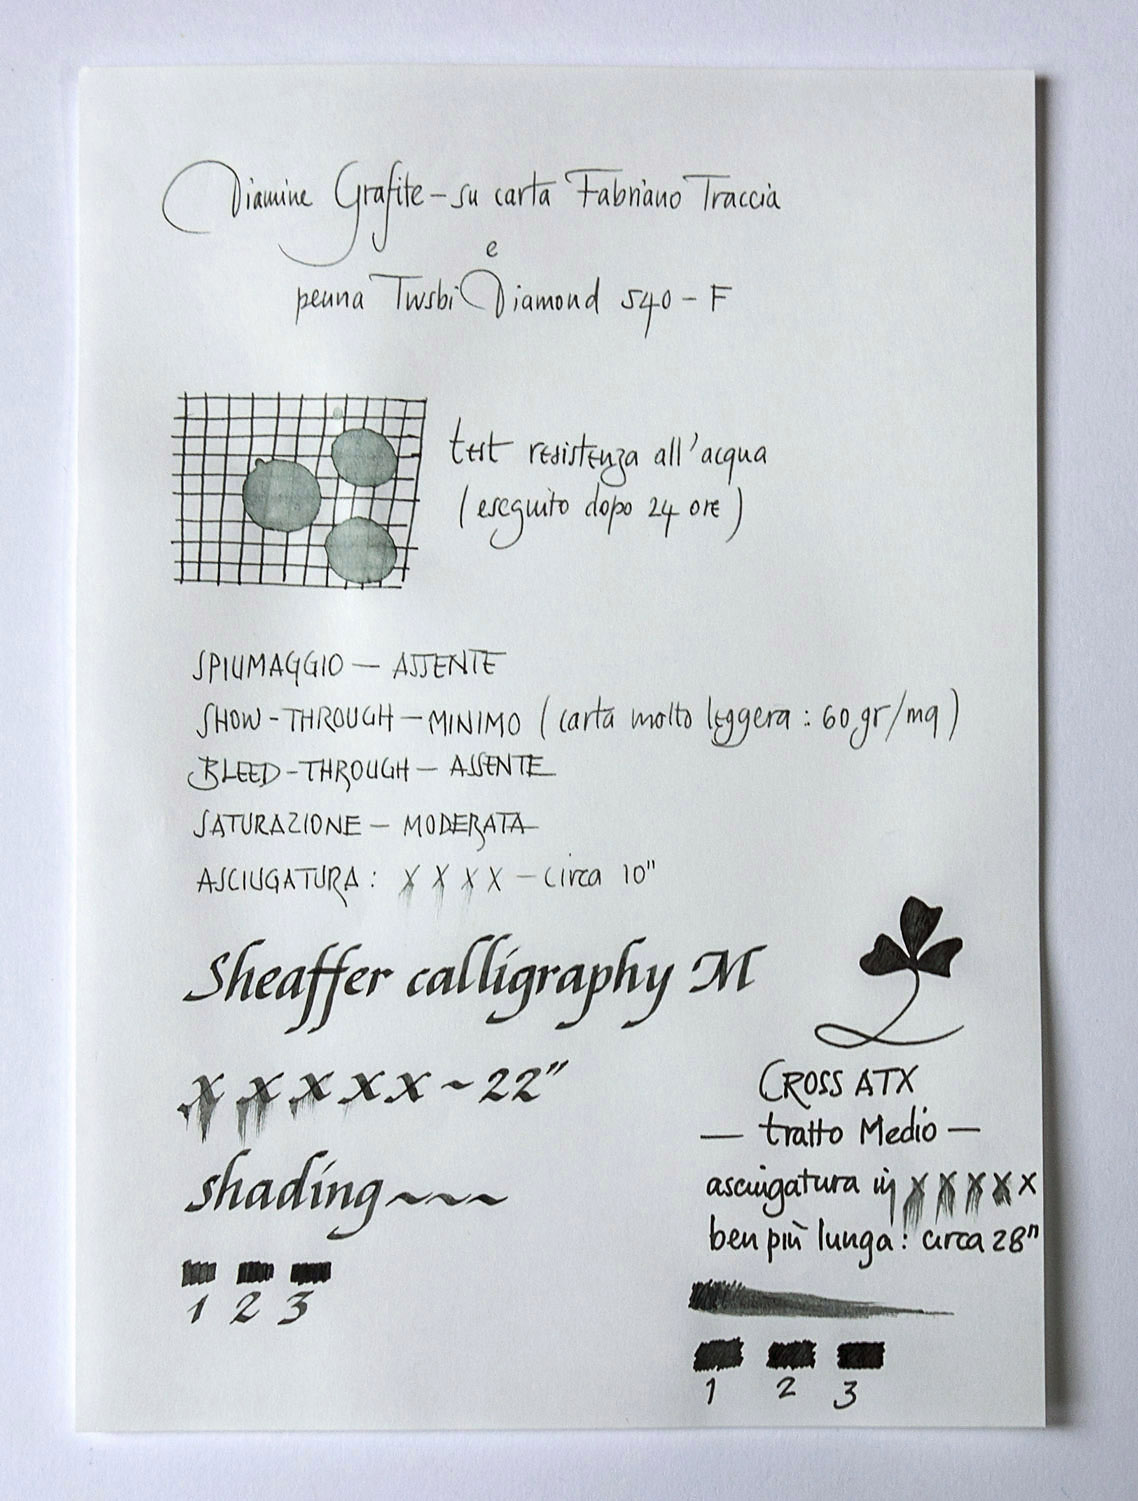 Diamine Grafite - su carta Fabriano Traccia
e
penna Twsbi Diamond 540 - F
test resistenza all'acqua
(eseguito dopo 24 ore)
SPIUMAGGIO - ASSENTE
SHOW-THROUGH - MINIMO (carta molto leggera: 60 gr/mq)
BLEED-THROUGH - ASSENTE
SATURAZIONE - MODERATA
ASCIUGATURA: X X X X - circa 10"
Sheaffer calligraphy M
x x x x x ~ 22"
shading~~~
1 2 3
CROSS ATX
— tratto Medio —
asciugatura in x x x x x
ben più lunga: circa 28"
1 2 3